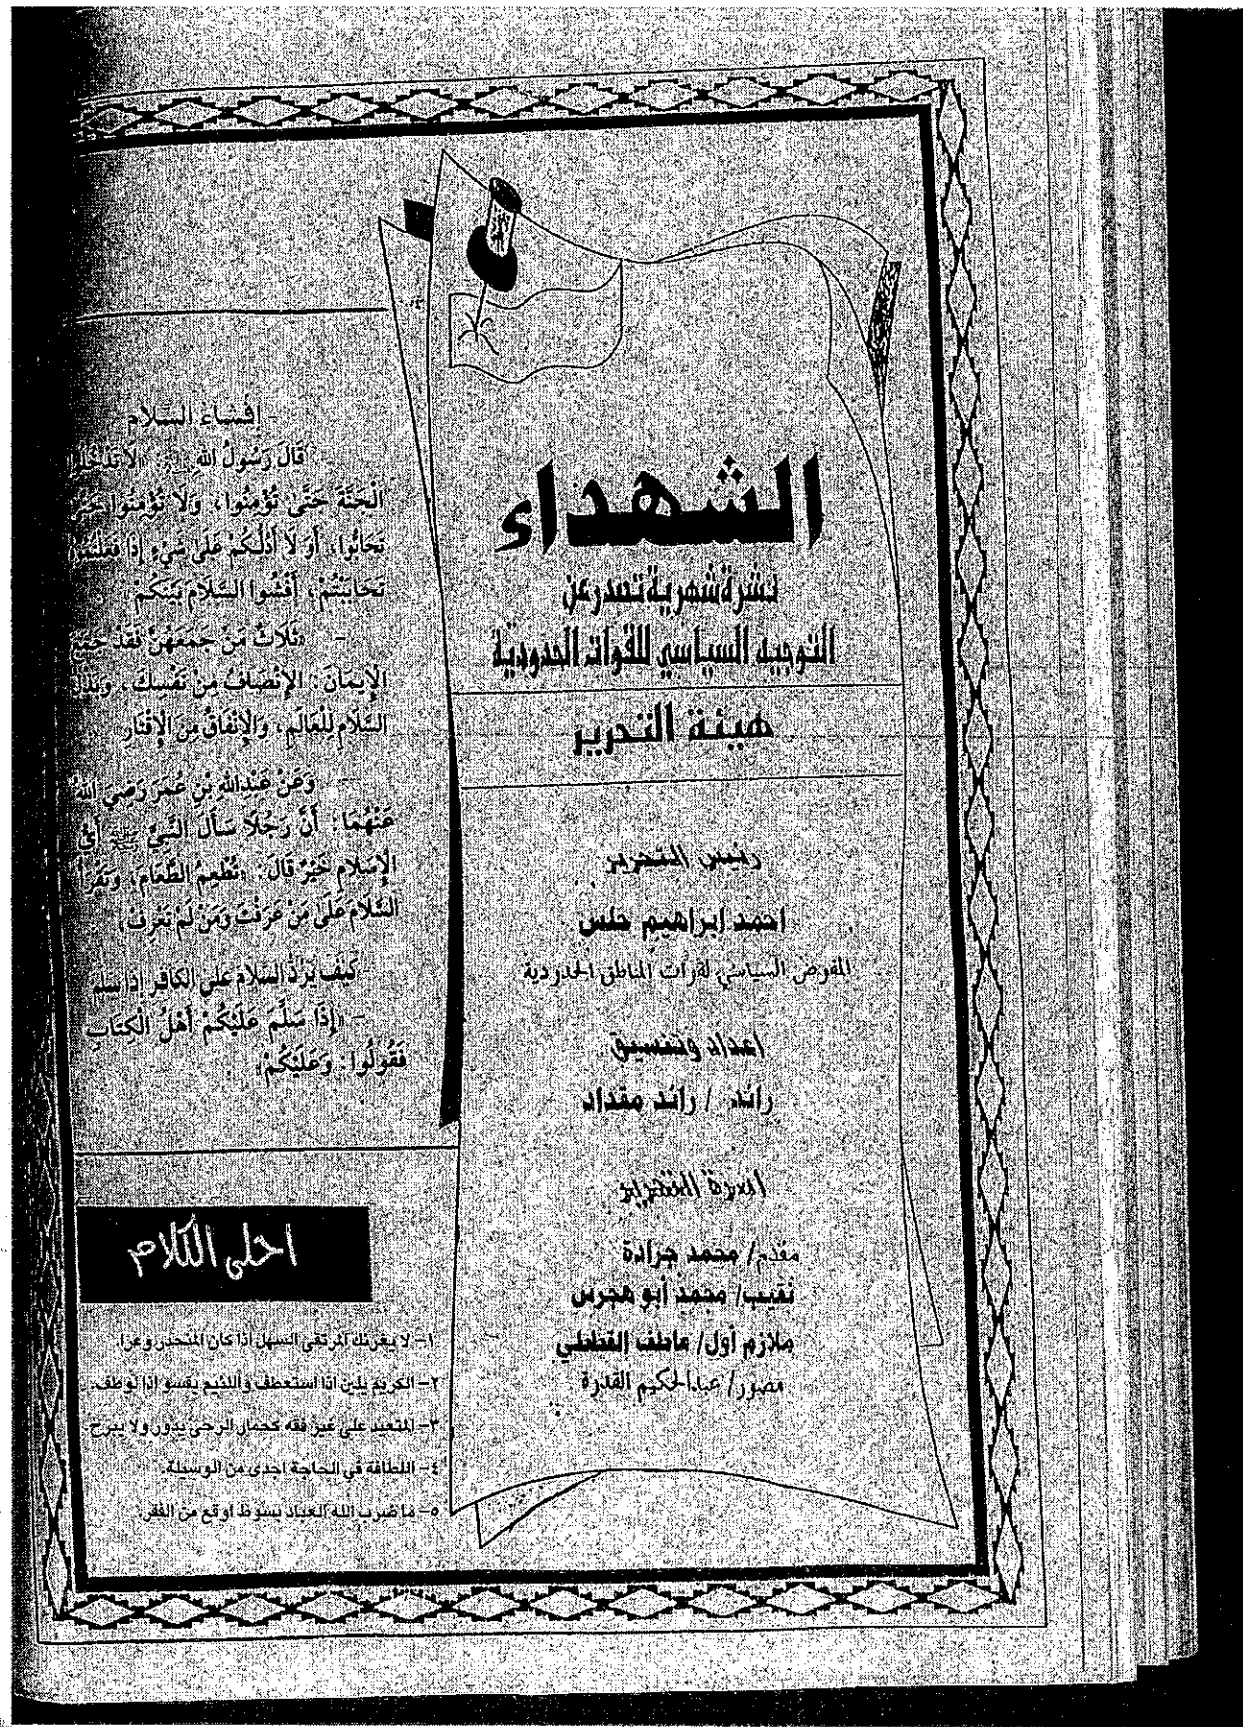 الشهداء
نشرة شهرية تصدر عن
التوجيه السياسي للقوات الحدودية
هيئة التحرير
رئيس التحرير
احمد ابراهيم حلس
المفوض السياسي لقوات المناطق الحدودية
اعداد وتنسيق
رائد / رائد مقداد
اسرة التحرير
مقدم/ محمد جرادة
نقيب/ محمد أبو هجرس
ملازم أول/ عاطف القططي
مصور/ عبدالحكيم القدرة
- إفْشَاءُ السَّلَام
قَالَ رَسُولُ اللهِ : «لَا
الْجَنَّةَ حَتَّى تُؤْمِنُوا، وَلَا تُؤْمِنُوا
تَحَابُّوا، أَوَ لَا أَدُلُّكُمْ عَلَى شَيْءٍ إِذَا
تَحَابَبْتُمْ، أَفْشُوا السَّلَامَ بَيْنَكُمْ»
- «ثَلَاثٌ مَنْ جَمَعَهُنَّ فَقَدْ
الْإِيمَانَ: الْإِنْصَافُ مِنْ نَفْسِكَ،
السَّلَامِ لِلْعَالَمِ، وَالْإِنْفَاقُ مِنَ الْإِقْتَارِ
- وَعَنْ عَبْدِاللهِ بْنِ عُمَرَ رَضِيَ اللهُ
عَنْهُمَا: أَنَّ رَجُلًا سَأَلَ النَّبِيَّ أَيُّ
الْإِسْلَامِ خَيْرٌ قَالَ: «تُطْعِمُ الطَّعَامَ، وَتَقْرَأُ
السَّلَامَ عَلَى مَنْ عَرَفْتَ وَمَنْ لَمْ تَعْرِفْ
- كَيْفَ يُرَدُّ السَّلَامُ عَلَى الكافر إذا سلم
- «إِذَا سَلَّمَ عَلَيْكُمْ أَهْلُ الْكِتَابِ
فَقُولُوا: وَعَلَيْكُمْ»
احلى الكلام
١- لا يغرنك المرتقى السهل اذا كان المنحدر وعرا.
٢- الكريم يلين اذا استعطف واللئيم يقسو اذا لوطف.
٣- المتعبد على غير فقه كحمار الرحى يدور ولا يبرح.
٤- اللطافة في الحاجة اجدى من الوسيلة.
٥- ما ضرب الله العباد بسوط اوقع من الفقر.